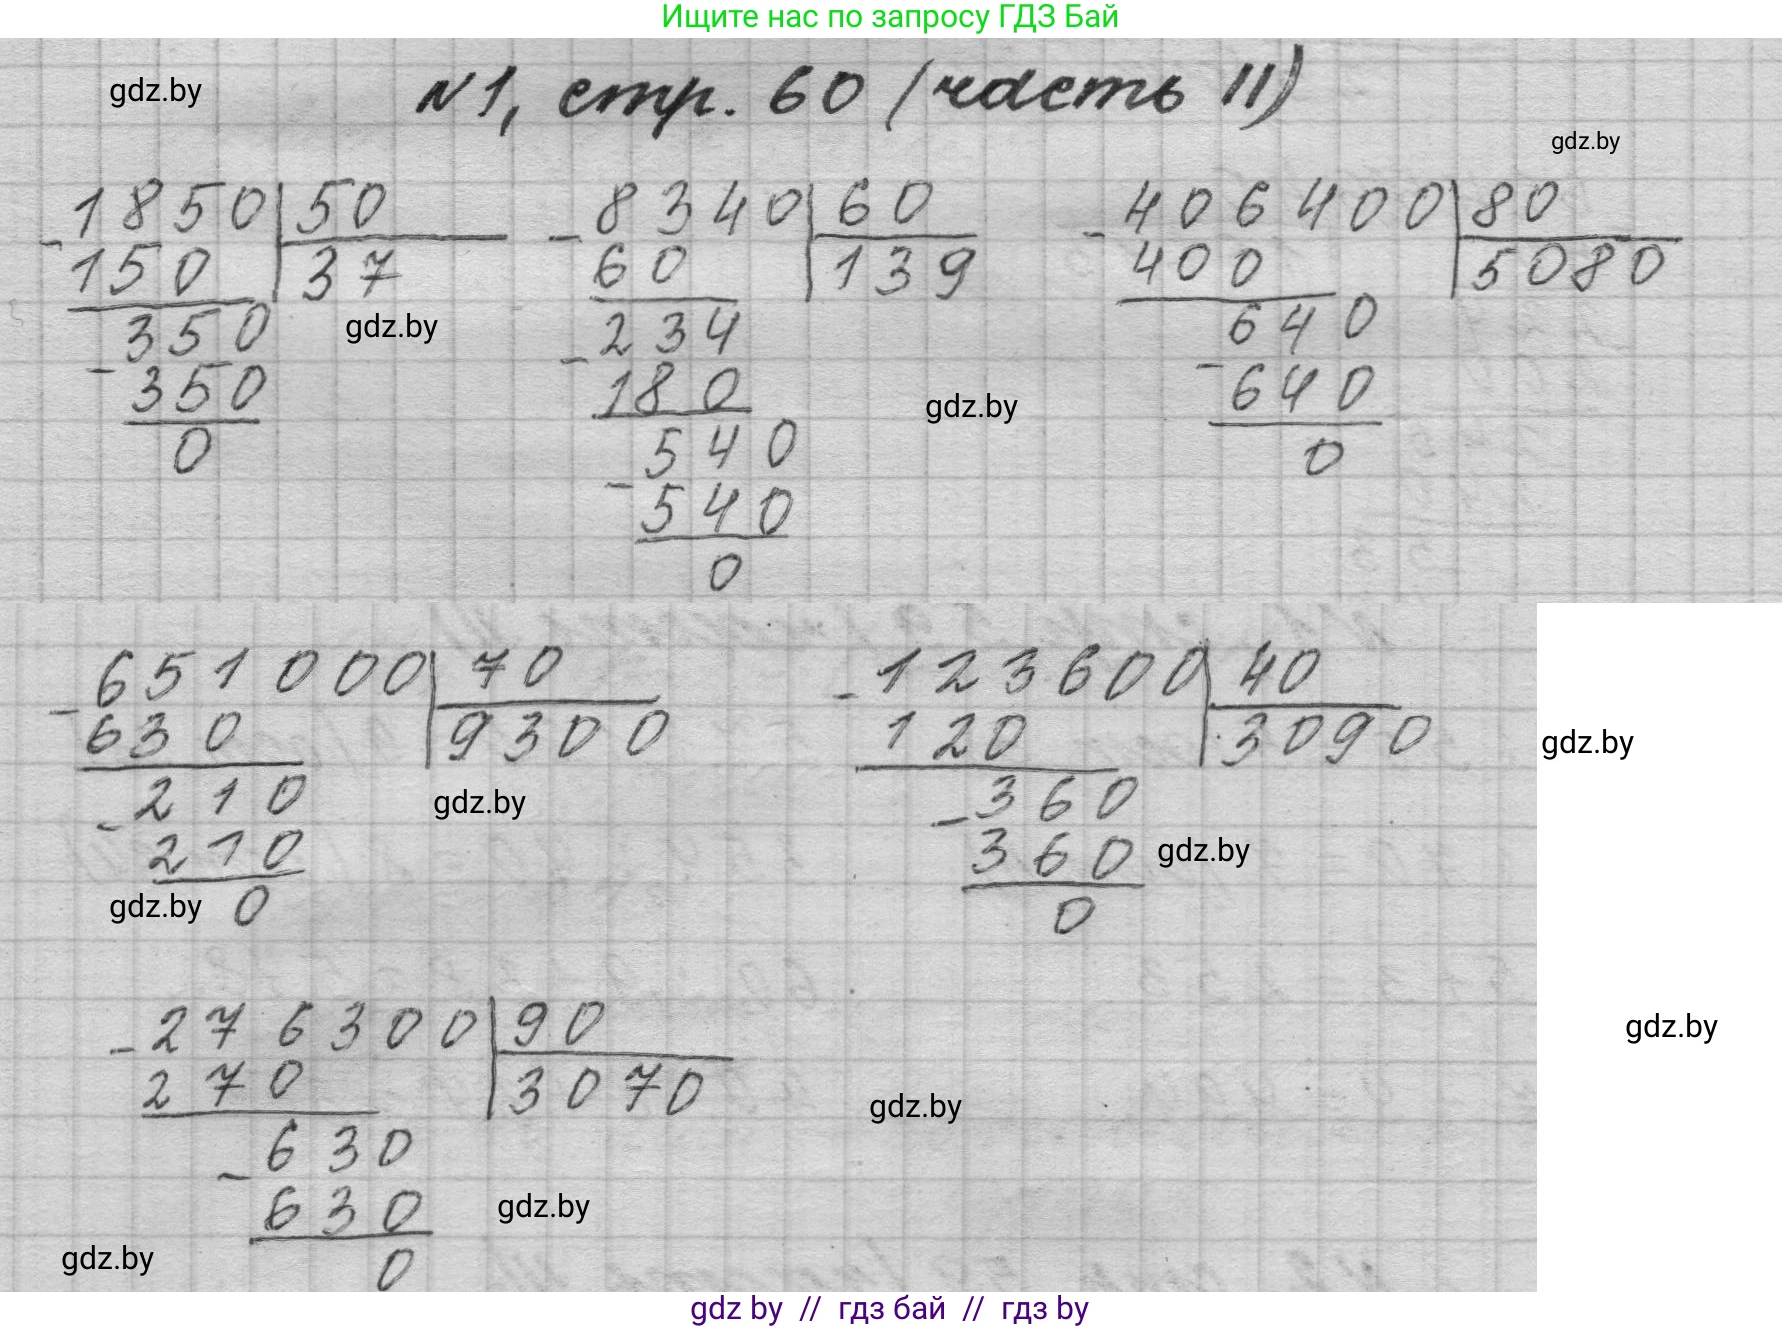 Ищите нас по запросу ГДЗ Бай
N1, стр. 60 (часть II)
gdz.by
gdz.by
1850 | 50
- 150 | 37
350
- 350
0
gdz.by
8340 | 60
- 60 | 139
234
- 180
540
- 540
0
gdz.by
406400 | 80
- 400 | 5080
640
- 640
0
651000 | 70
- 630 | 9300
210
- 210
0
gdz.by
gdz.by
123600 | 40
- 120 | 3090
360
- 360
0
gdz.by
gdz.by
276300 | 90
- 270 | 3070
630
- 630
0
gdz.by
gdz.by
gdz.by
gdz.by
gdz by // гдз бай // гдз by